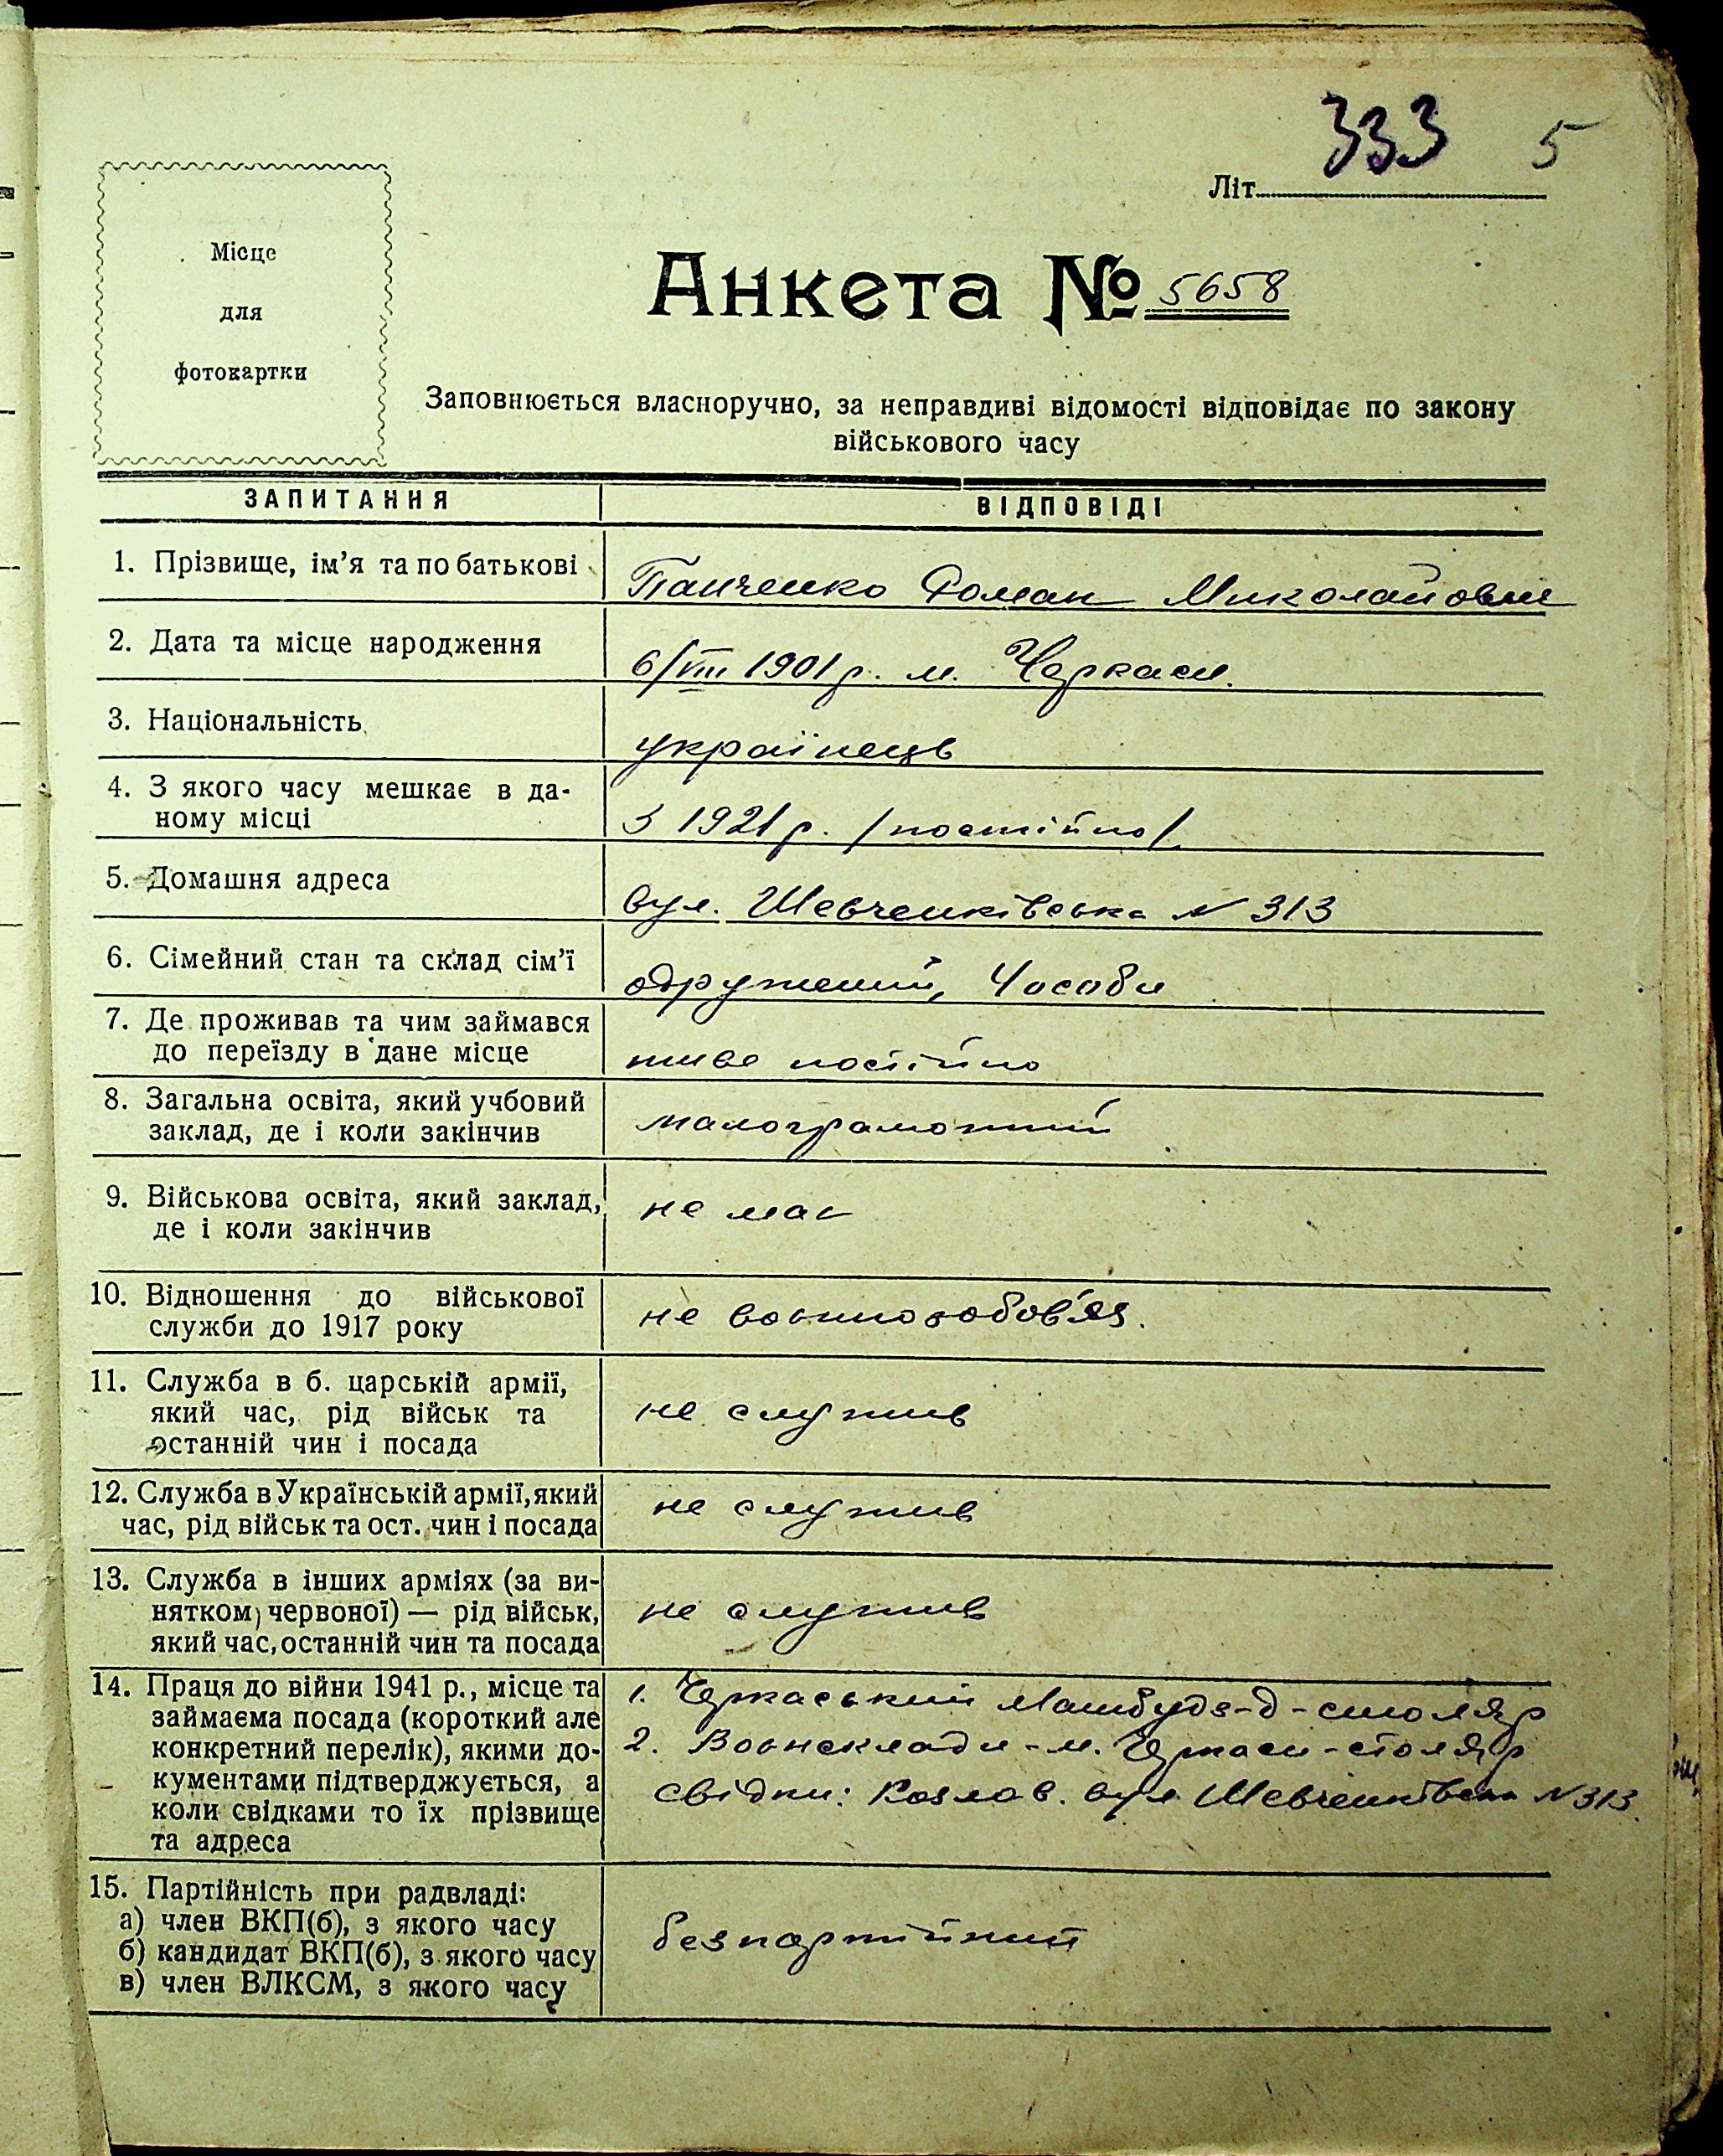 333 5
Літ.
Місце
для
фотокартки
Анкета № 5658
Заповнюється власноручно, за неправдиві відомості відповідає по закону
військового часу
ЗАПИТАННЯ ВІДПОВІДІ
1. Прізвище, ім'я та по батькові
Панченко Роман Миколайович
2. Дата та місце народження
6/VIII 1901 р. м. Черкаси.
3. Національність
українець
4. З якого часу мешкає в да-
ному місці
З 1921 р. /постійно/.
5. Домашня адреса
вул. Шевченківська N 313
6. Сімейний стан та склад сім'ї
одружений, 4 особи
7. Де проживав та чим займався
до переїзду в дане місце
живе постійно
8. Загальна освіта, який учбовий
заклад, де і коли закінчив
малограмотний
9. Військова освіта, який заклад,
де і коли закінчив
не має
10. Відношення до військової
служби до 1917 року
не воєннозобов'яз.
11. Служба в б. царській армії,
який час, рід військ та
останній чин і посада
не служив
12. Служба в Українській армії, який
час, рід військ та ост. чин і посада
не служив
13. Служба в інших арміях (за ви-
нятком червоної) — рід військ,
який час, останній чин та посада
не служив
14. Праця до війни 1941 р., місце та
займаєма посада (короткий але
конкретний перелік), якими до-
кументами підтверджується, а
коли свідками то їх прізвище
та адреса
1. Черкаський Машбуд з-д - столяр
2. Воєнсклади - м. Черкаси - столяр
свідки: Козлов. вул Шевченківська N 313.
15. Партійність при радвладі:
а) член ВКП(б), з якого часу
б) кандидат ВКП(б), з якого часу
в) член ВЛКСМ, з якого часу
безпартійний